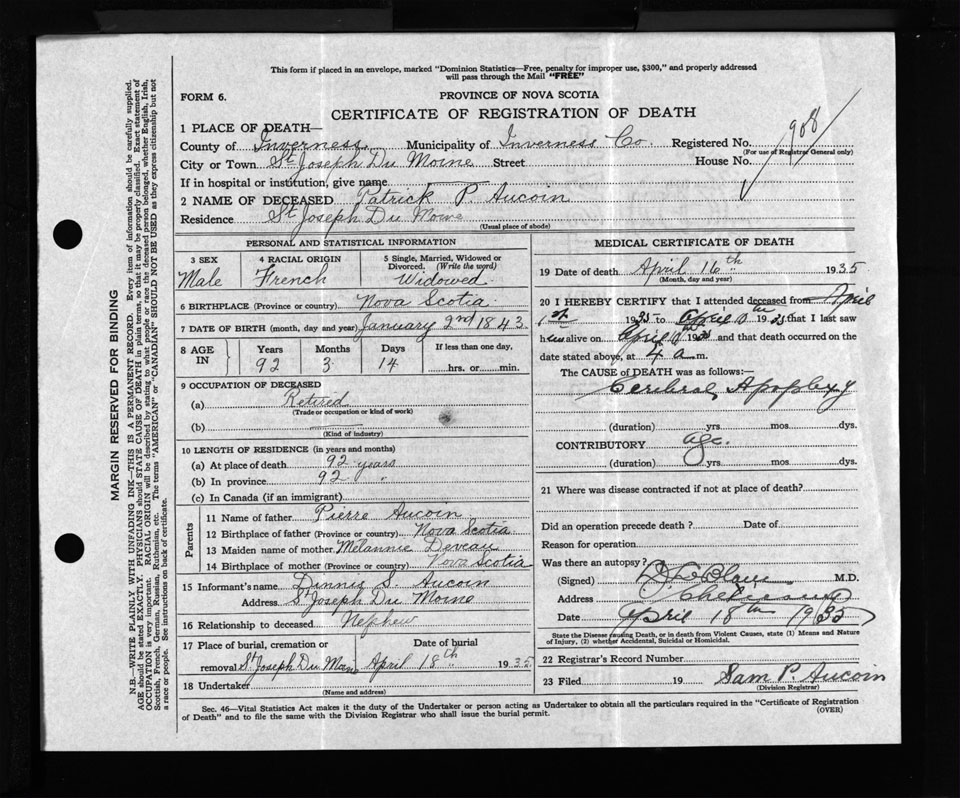 This form if placed in an envelope, marked "Dominion Statistics—Free, penalty for improper use, $300," and properly addressed
will pass through the Mail "FREE"
FORM 6.
PROVINCE OF NOVA SCOTIA
CERTIFICATE OF REGISTRATION OF DEATH
1 PLACE OF DEATH—
County of Inverness Municipality of Inverness Co. Registered No. 908
(For use of Registrar General only)
City or Town St Joseph Du Moine Street House No.
If in hospital or institution, give name
2 NAME OF DECEASED Patrick P. Aucoin
Residence St Joseph Du Moine
(Usual place of abode)
PERSONAL AND STATISTICAL INFORMATION
3 SEX 4 RACIAL ORIGIN 5 Single, Married, Widowed or
Divorced. (Write the word)
Male French Widowed
6 BIRTHPLACE (Province or country) Nova Scotia
7 DATE OF BIRTH (month, day and year) January 2nd 1843.
8 AGE IN Years Months Days If less than one day,
92 3 14 hrs. or min.
9 OCCUPATION OF DECEASED
(a) Retired
(Trade or occupation or kind of work)
(b)
(Kind of industry)
10 LENGTH OF RESIDENCE (in years and months)
(a) At place of death 92 years
(b) In province 92 "
(c) In Canada (if an immigrant)
Parents
11 Name of father Pierre Aucoin
12 Birthplace of father (Province or country) Nova Scotia
13 Maiden name of mother Melannie Deveau
14 Birthplace of mother (Province or country) Nova Scotia
15 Informant's name Dinnis S. Aucoin
Address St Joseph Du Moine
16 Relationship to deceased Nephew
17 Place of burial, cremation or Date of burial
removal St Joseph Du Moine April 18th 1935
18 Undertaker
(Name and address)
MEDICAL CERTIFICATE OF DEATH
19 Date of death April 16th 1935
(Month, day and year)
20 I HEREBY CERTIFY that I attended deceased from April
1st 1935 to April 1935 that I last saw
him alive on April 1935 and that death occurred on the
date stated above, at 4 a m.
The CAUSE of DEATH was as follows:—
Cerebral Apoplexy
(duration) yrs mos. dys.
CONTRIBUTORY age.
(duration) yrs mos. dys.
21 Where was disease contracted if not at place of death?
Did an operation precede death? Date of
Reason for operation
Was there an autopsy?
(Signed) LeBlanc M.D.
Address Cheticamp
Date April 18th 1935
State the Disease causing Death, or in death from Violent Causes, state (1) Means and Nature
of Injury, (2) whether Accidental, Suicidal or Homicidal.
22 Registrar's Record Number
23 Filed 19 Sam P. Aucoin
(Division Registrar)
Sec. 46—Vital Statistics Act makes it the duty of the Undertaker or person acting as Undertaker to obtain all the particulars required in the "Certificate of Registration
of Death" and to file the same with the Division Registrar who shall issue the burial permit. (OVER)
MARGIN RESERVED FOR BINDING
N.B.—WRITE PLAINLY WITH UNFADING INK—THIS IS A PERMANENT RECORD. Every item of information should be carefully supplied.
AGE should be stated EXACTLY. PHYSICIANS should STATE CAUSE OF DEATH in plain terms, so that it may be properly classified. Exact statement of
OCCUPATION is very important. RACIAL ORIGIN will be described by stating to what people or race the deceased person belonged, whether English, Irish,
Scottish, French, German, Russian, Ruthenian, etc. The terms "AMERICAN" or "CANADIAN" SHOULD NOT BE USED as they express citizenship but not
a race or people. See instructions on back of certificate.